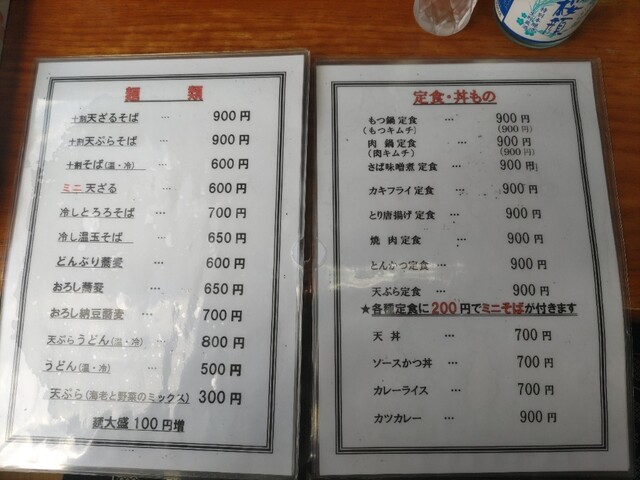 麺 類
十割天ざるそば … 900円
十割天ぷらそば … 900円
十割そば(温・冷) … 600円
ミニ 天ざる … 600円
冷しとろろそば … 700円
冷し温玉そば … 650円
どんぶり蕎麦 … 600円
おろし蕎麦 … 650円
おろし納豆蕎麦 … 700円
天ぷらうどん(温・冷) … 800円
うどん(温・冷) … 500円
天ぷら(海老と野菜のミックス) 300円
麺大盛100円増
定食・丼もの
もつ鍋定食 … 900円
(もつキムチ) (900円)
肉鍋定食 … 900円
(肉キムチ) (900円)
さば味噌煮定食 … 900円
カキフライ定食 … 900円
とり唐揚げ定食 … 900円
焼肉定食 … 900円
とんかつ定食 … 900円
天ぷら定食 … 900円
★各種定食に200円でミニそばが付きます
天丼 … 700円
ソースかつ丼 … 700円
カレーライス … 700円
カツカレー … 900円